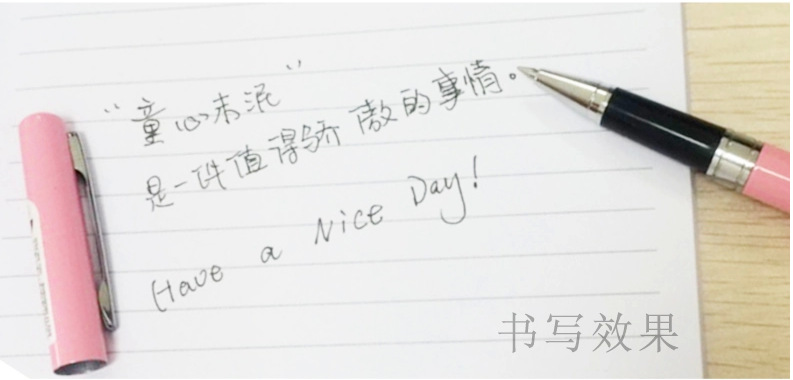 “童心未泯”
是一件值得骄傲的事情。
Have a Nice Day!
书写效果